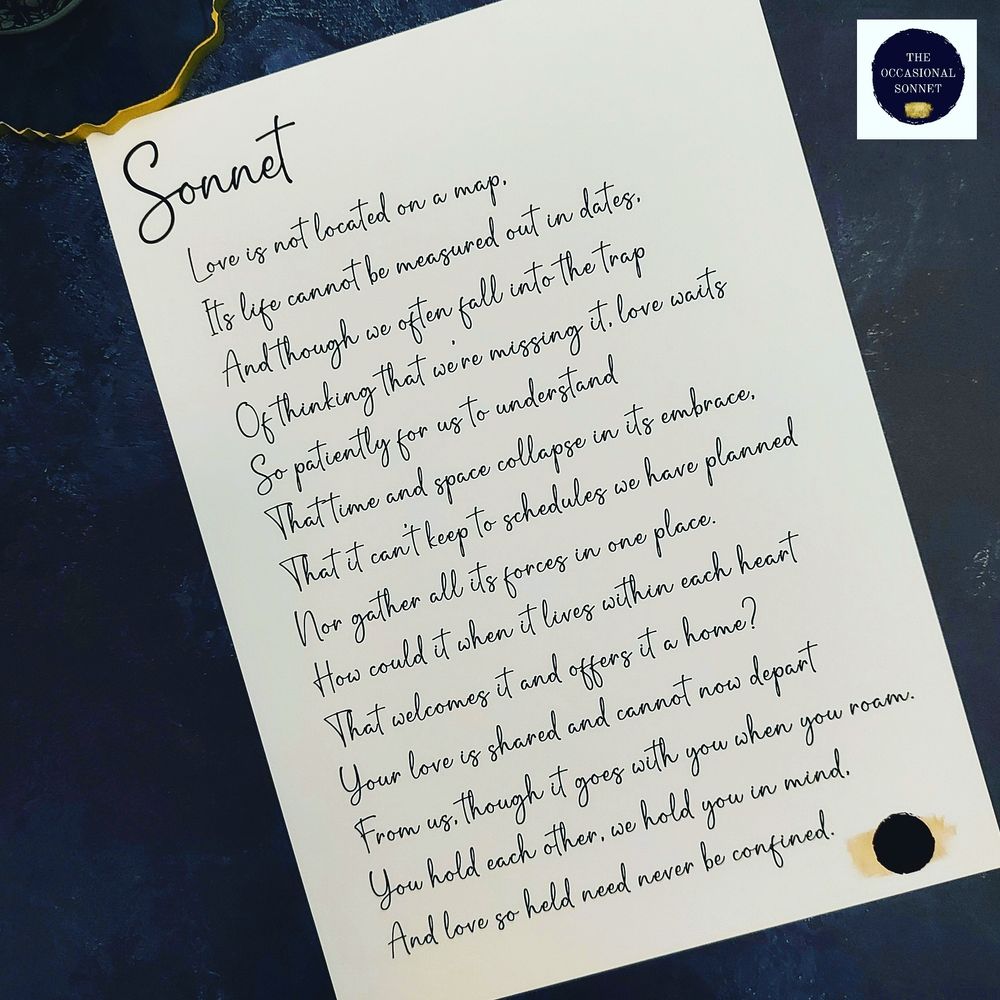 THE
OCCASIONAL
SONNET
Sonnet
Love is not located on a map,
Its life cannot be measured out in dates,
And though we often fall into the trap
Of thinking that we're missing it, love waits
So patiently for us to understand
That time and space collapse in its embrace,
That it can't keep to schedules we have planned
Nor gather all its forces in one place.
How could it when it lives within each heart
That welcomes it and offers it a home?
Your love is shared and cannot now depart
From us, though it goes with you when you roam.
You hold each other, we hold you in mind,
And love so held need never be confined.